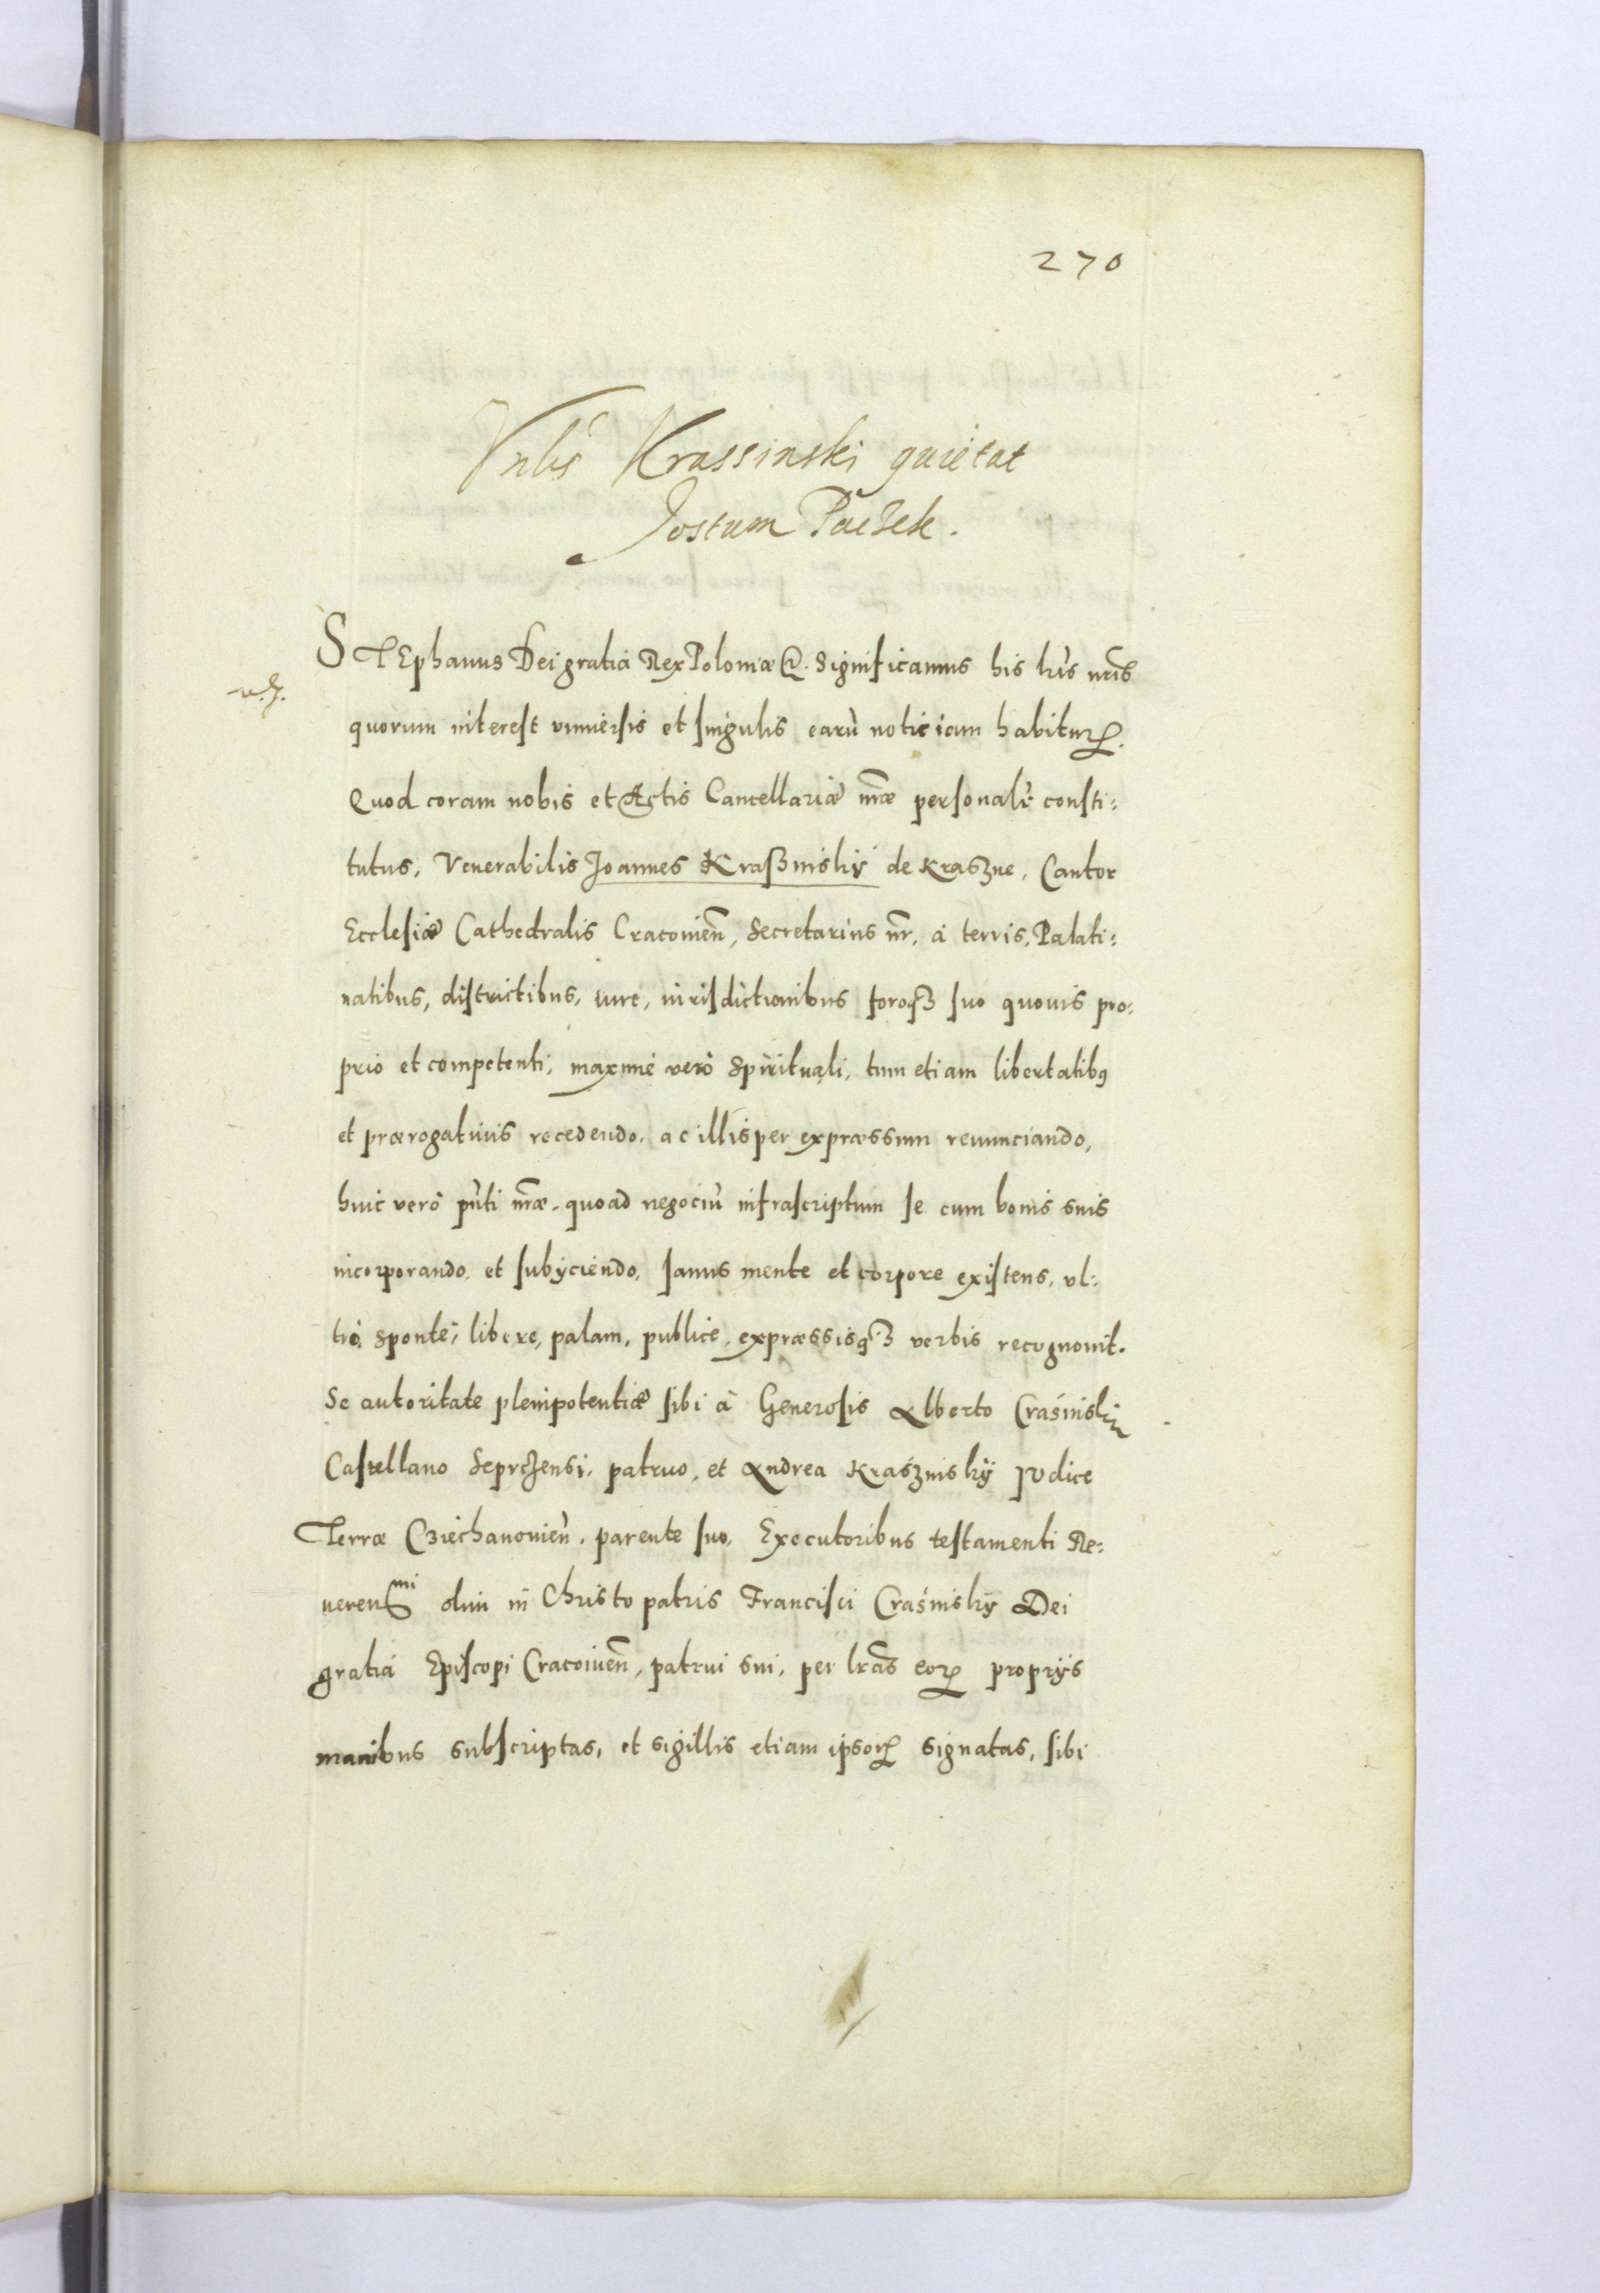 270
Vnlis Krassinski quietat
Jostum Paczek.
STEphanus Dei gratia Rex Poloniæ &. Significamus his lris nris
v. J.
quorum interest vniuersis et singulis earu noticiam habituror.
Quod coram nobis et Actis Cancellariæ nræ personalr consti:
tutus, Venerabilis Joannes Kraßinsky de Kraszne, Cantor
Ecclesiæ Cathedralis Cracouien, Secretarius nr, à terris, Palati:
natibus, districtibus, iure, iurisdictionibus foroq3 suo quouis pro:
prio et competenti, maxime vero Spirituali, tum etiam libertatibus
et prærogatiuis recedendo, ac illis per expræssum renunciando,
huic verò pnti nræ, quoad negociu infrascriptum se cum bonis suis
incorporando, et subyciendo, sanus mente et corpore existens, vl:
trò, sponte, libere, palam, publice, expræssisq3 verbis recognouit.
Se autoritate plenipotentiæ sibi à Generosis Alberto Crasinskim
Castellano Seprczensi, patruo, et Andrea Kraszinsky Judice
Terræ Cziechanouien, parente suo, Executoribus testamenti Re:
uerenmi olim in Christo patris Francisci Crasinsky Dei
gratia Episcopi Cracouien, patrui sui, per lras eor propriis
manibus subscriptas, et sigillis etiam ipsor signatas, sibi